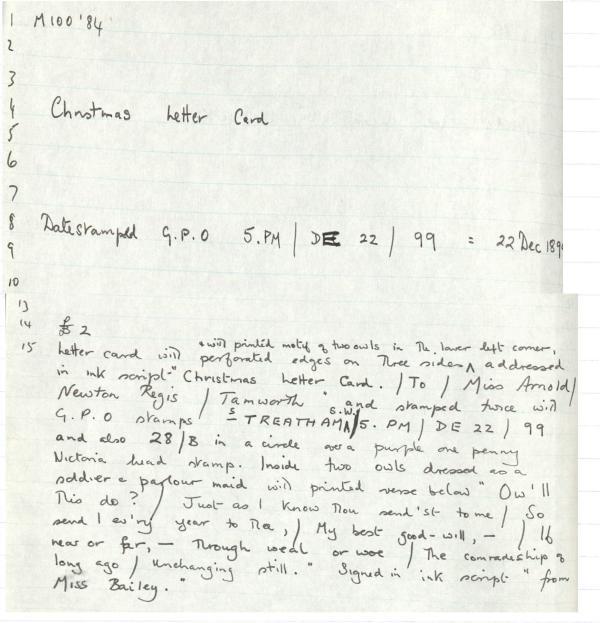 1 M100 '84
2
3
4 Christmas Letter Card
5
6
7
8 Datestamped G.P.O 5.PM / DE 22 / 99 = 22 Dec 189
9
10
13
14 £2
15 Letter card with perforated edges on three sides ^ with printed motif of two owls in the lower left corner, addressed
in ink script "Christmas Letter Card. / To / Miss Arnold /
Newton Regis / Tamworth" and stamped twice with
G.P.O stamps "STREATHAM ^ S.W. / 5. PM / DE 22 / 99
and also 28 / B in a circle over a purple one penny
Victoria head stamp. Inside two owls dressed as a
soldier & parlour maid with printed verse below "Ow'll
This do? / Just as I know thou send'st to me / So
send I ev'ry year to thee, / My best good-will, - / If
near or far, - Through weal or woe / The comradeship of
long ago / Unchanging still." Signed in ink script "from
Miss Bailey."